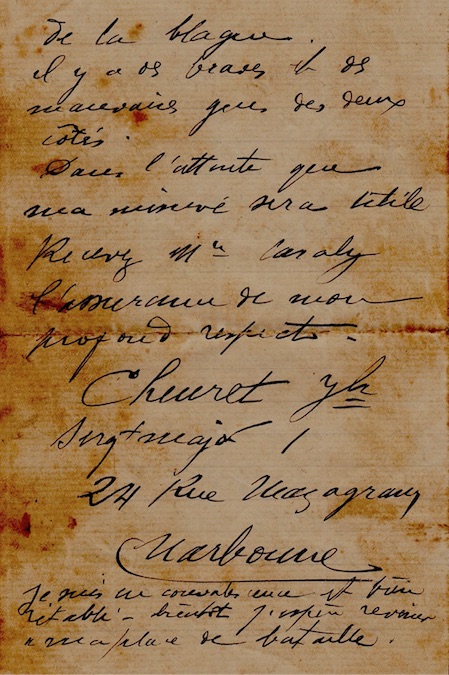 de la blague.
il y a de braves et de
mauvaises gens des deux
côtés.
Dans l'attente que
ma sera utile
Recevez Mr Casaly
l'assurance de mon
profond respect.
Cheuret
Sergt major
24 Rue Mazagran
Narbonne
Je suis en convalescence et bien
rétabli - bientôt j'espère revenir
a ma place de bataille.